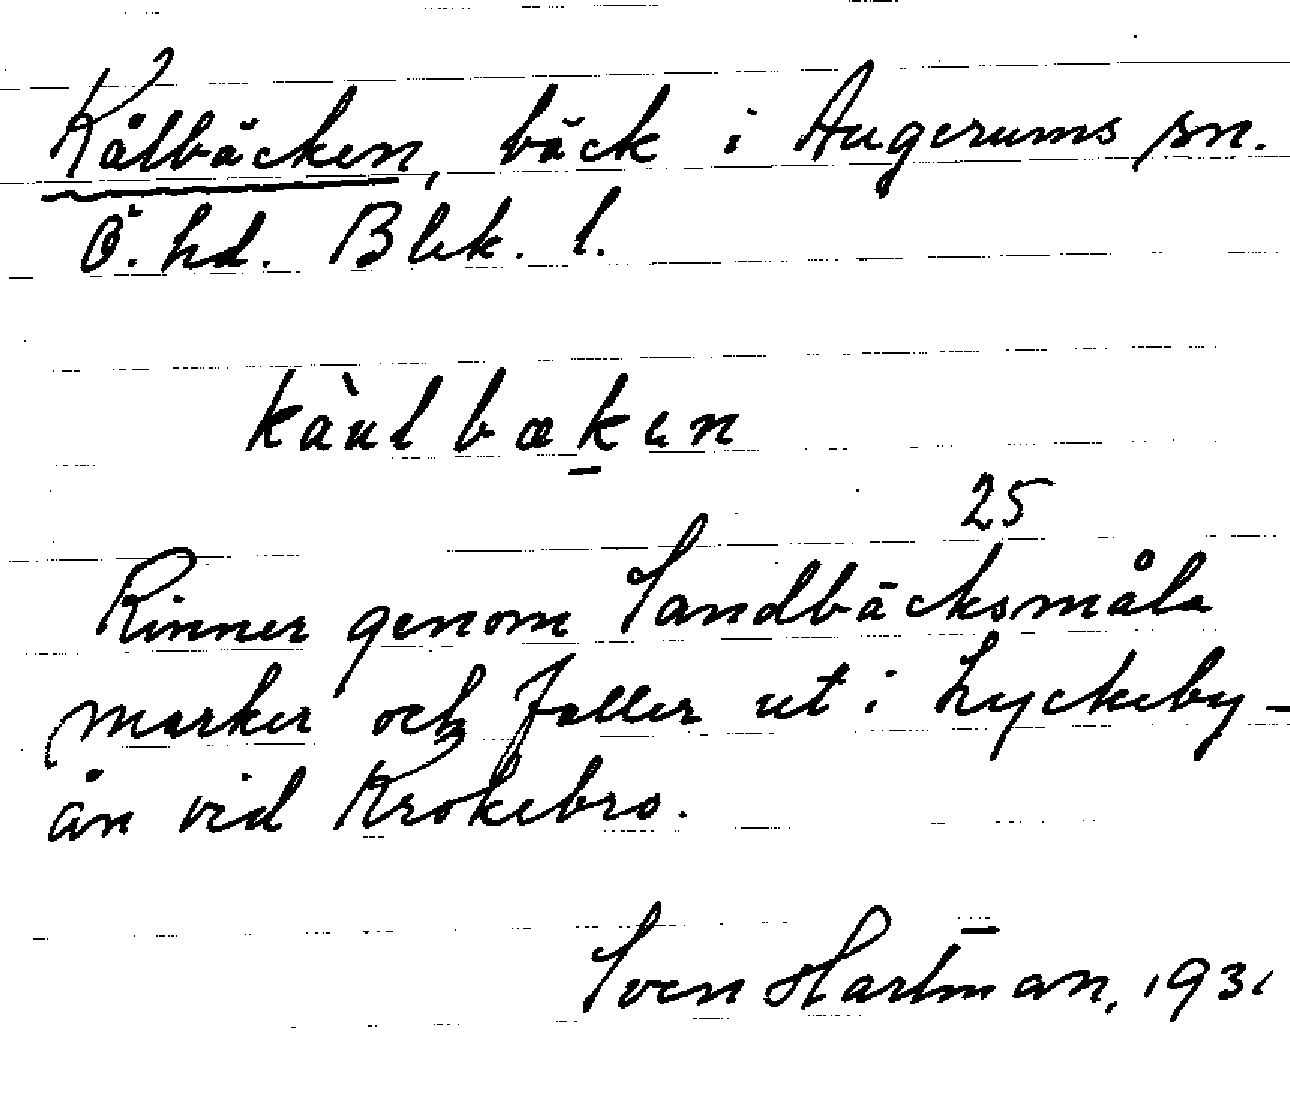 Kålbäcken, bäck i Augerums sn.
Ö. hd. Blek. l.
kàulbæken
25
Rinner genom Sandbäcksmåla
marker och faller ut i Lyckeby-
ån vid Krokebro.
Sven Hartman, 1931